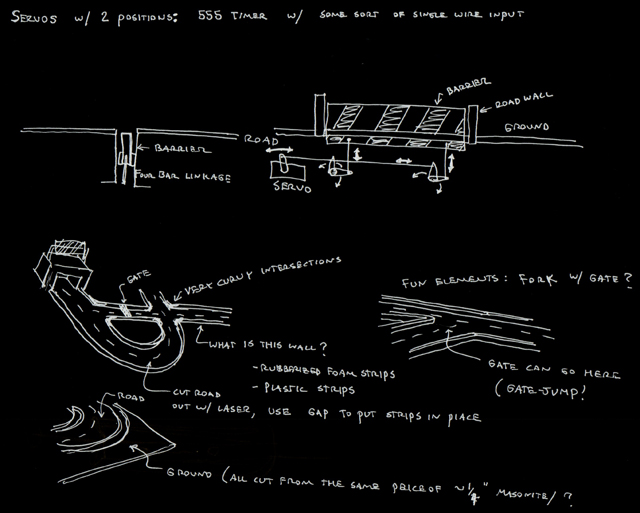 SERVOS W/ 2 POSITIONS: 555 TIMER W/ SOME SORT OF SINGLE WIRE INPUT
BARRIER
ROAD WALL
GROUND
ROAD
BARRIER
FOUR BAR LINKAGE
SERVO
GATE
VERY CURVY INTERSECTIONS
FUN ELEMENTS: FORK W/ GATE?
WHAT IS THIS WALL?
- RUBBERIZED FOAM STRIPS
- PLASTIC STRIPS
GATE CAN GO HERE
(GATE-JUMP!
CUT ROAD
OUT W/ LASER, USE GAP TO PUT STRIPS IN PLACE
ROAD
GROUND (ALL CUT FROM THE SAME PEICE OF ~1/4" MASONITE/ ?